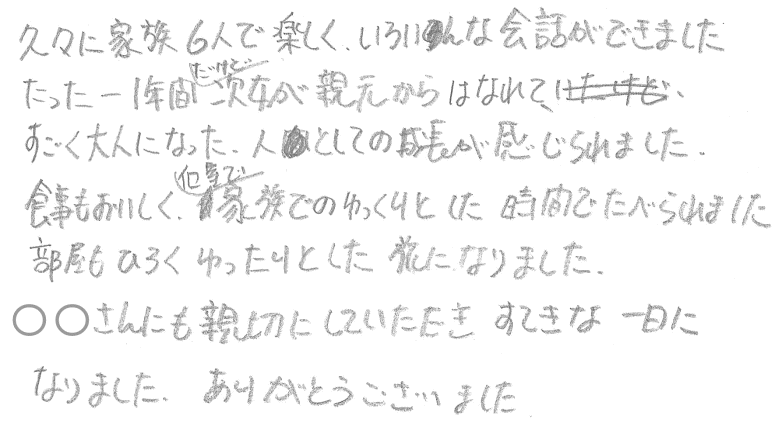 久々に家族6人で楽しく、いろいろんな会話ができました
たった一1年間だけど次女が親元からはなれて、いたけど、
すごく大人になった、人としての成長が感じられました。
食事もおいしく、個室で家族でのゆっくりとした時間でたべられました
部屋もひろくゆったりとした気になりました。
○○さんにも親切にしていただき すてきな一日に
なりました。ありがとうございました